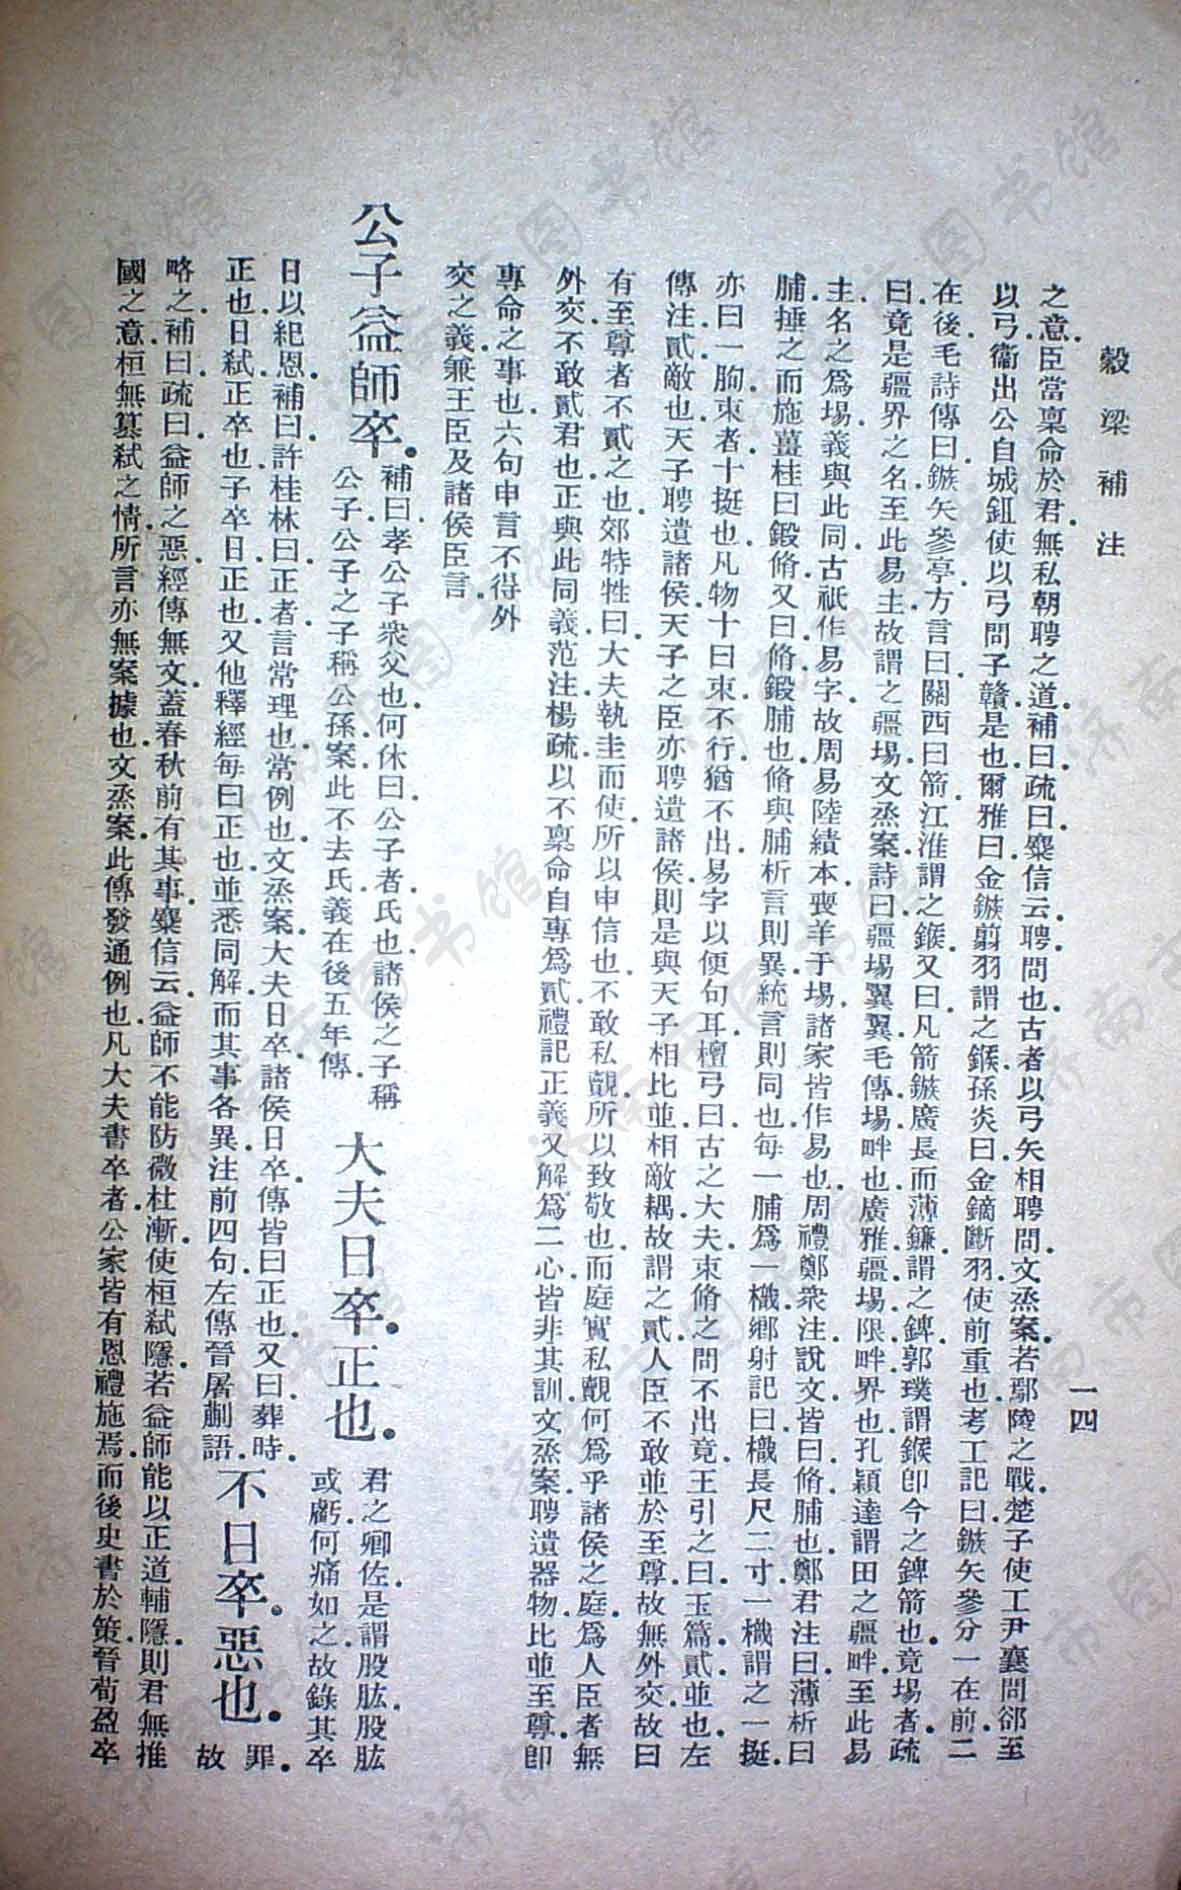 穀梁補注
一四
之意臣當稟命於君無私朝聘之道補曰疏曰麋信云聘問也古者以弓矢相聘問文烝案若鄢陵之戰楚子使工尹襄問郤至
以弓衞出公自城鉏使以弓問子贛是也爾雅曰金鏃翦羽謂之鍭孫炎曰金鏑斷羽使前重也考工記曰鍭矢參分一在前二
在後毛詩傳曰鍭矢參亭方言曰關西曰箭江淮謂之鍭又曰凡箭鏃廣長而薄鐮謂之錍郭璞謂鍭卽今之錍箭也竟埸者疏
曰竟是疆界之名至此易主故謂之疆埸文烝案詩曰疆埸翼翼毛傳埸畔也廣雅疆埸限畔界也孔穎達謂田之疆畔至此易
主名之爲埸義與此同古祇作易字故周易陸績本喪羊于埸諸家皆作易也周禮鄭衆注說文皆曰脩脯也鄭君注曰薄析曰
脯捶之而施薑桂曰鍛脩又曰脩鍛脯也脩與脯析言則異統言則同也每一脯爲一樴鄉射記曰樴長尺二寸一樴謂之一挺
亦曰一朐束者十挺也凡物十曰束不行猶不出易字以便句耳檀弓曰古之大夫束脩之問不出竟王引之曰玉篇貳並也左
傳注貳敵也天子聘遣諸侯天子之臣亦聘遣諸侯則是與天子相比並相敵耦故謂之貳人臣不敢並於至尊故無外交故曰
有至尊者不貳之也郊特牲曰大夫執圭而使所以申信也不敢私覿所以致敬也而庭實私覿何爲乎諸侯之庭爲人臣者無
外交不敢貳君也正與此同義范注楊疏以不稟命自專爲貳禮記正義又解爲二心皆非其訓文烝案聘遺器物比並至尊卽
專命之事也六句申言不得外
交之義兼王臣及諸侯臣言
公子益師卒
補曰孝公子衆父也何休曰公子者氏也諸侯之子稱
公子公子之子稱公孫案此不去氏義在後五年傳
大夫日卒正也
君之卿佐是謂股肱股肱
或虧何痛如之故錄其卒
日以紀恩補曰許桂林曰正者言常理也常例也文烝案大夫日卒諸侯日卒傳皆曰正也又曰葬時
正也日弑正卒也子卒日正也又他釋經每曰正也並悉同解而其事各異注前四句左傳晉屠蒯語
不日卒惡也
罪
故
略之補曰疏曰益師之惡經傳無文蓋春秋前有其事麋信云益師不能防微杜漸使桓弑隱若益師能以正道輔隱則君無推
國之意桓無篡弑之情所言亦無案據也文烝案此傳發通例也凡大夫書卒者公家皆有恩禮施焉而後史書於策晉荀盈卒